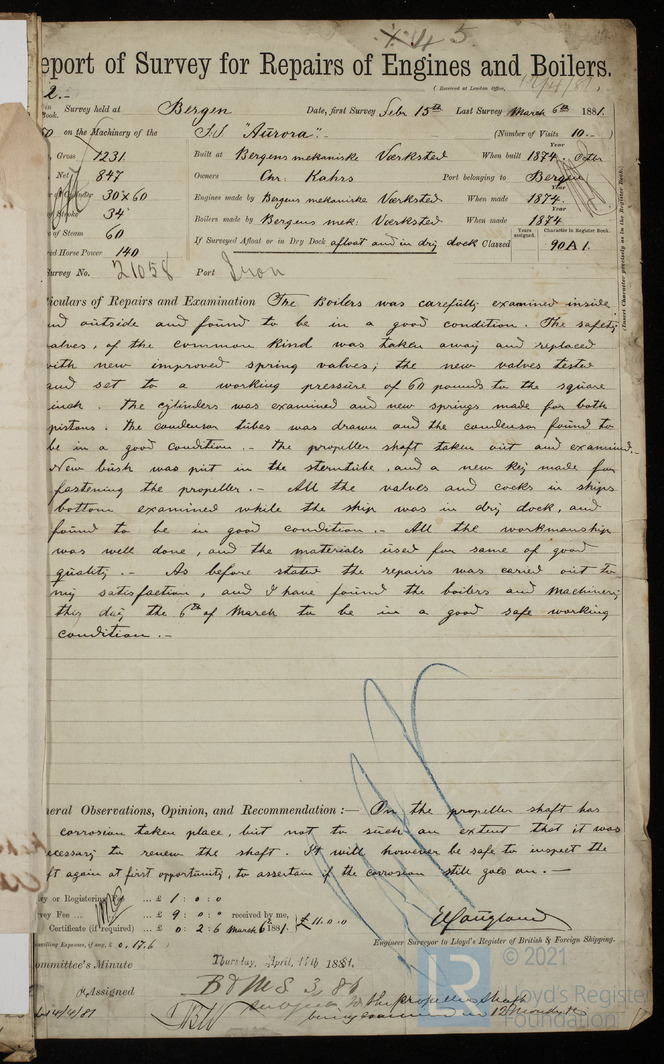 eport of Survey for Repairs of Engines and Boilers.
(Received at London Office,
2.-
Survey held at Bergen Date, first Survey Febr 15th Last Survey March 6th 1881.
on the Machinery of the S.S "Aurora".- (Number of Visits 10.-)
Gross 1231 Built at Bergens mekaniske Værksted When built 1874
Net 847 Owners Chr. Kahrs Port belonging to Bergen
30 x 60 Engines made by Bergens mekaniske Værksted When made 1874
Stroke 34 Boilers made by Bergens mek: Værksted When made 1874
of Steam 60 If Surveyed Afloat or in Dry Dock afloat and in dry dock Classed 90 A 1.
Years assigned. Character in Register Book.
(Insert Character precisely as in the Register Book.)
ed Horse Power 140
urvey No. 21058 Port Iron
iculars of Repairs and Examination The Boilers was carefully examined inside
nd outside and found to be in a good condition. The safety
alves, of the common kind was taken away and replaced
with new improved spring valves; the new valves tested
and set to a working pressure of 60 pounds to the square
inch. The cylinders was examined and new springs made for both
pistons. The condensor tubes was drawn and the condensor found to
be in a good condition.- The propeller shaft taken out and examined.-
New bush was put in the sterntube, and a new key made for
fastening the propeller.- All the valves and cocks in ships
bottom examined while the ship was in dry dock, and
found to be in good condition.- All the workmanship
was well done, and the materials used for same of good
quality.- As before stated the repairs was caried out to
my satisfaction, and I have found the boilers and Machinery
this day the 6th of March to be in a good safe working
condition.-
neral Observations, Opinion, and Recommendation :— On the propeller shaft has
corrosian taken place, but not to such an extent that it was
ecessary to renew the shaft. It will however be safe to inspect the
ft again at first opportunity, to assertain if the corrosian still goes on.—
ry or Registering Fee ... £ 1 : 0 : 0
vey Fee ... £ 9 : 0 : 0 received by me,
Certificate (if required) ... £ 0 : 2 : 6 March 6th 1881. £ 11.0.0
avelling Expenses, if any, £ 0.17.6)
Engineer Surveyor to Lloyd's Register of British & Foreign Shipping.
ommittee's Minute Thursday, April, 14th 1881.
Assigned B & M S 3,81
subject to the propeller shaft
being examined in 12 Months
14/4/81
© 2021
LR
Lloyd's Register
Foundation